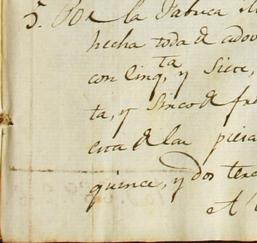 5. Por la Fabrica
hecha toda de adov
con cinq.ta y Siete,
ta, y Sinco de fre
cica de las piesa
quince, y dos terc
A